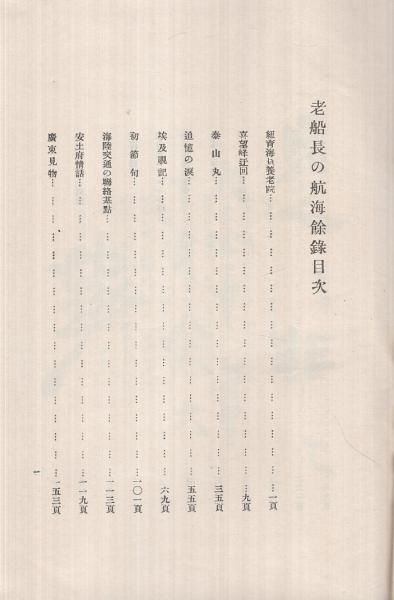 老船長の航海餘錄目次
紐育海員養老院……………………………………………一頁
喜望峰迂回……………………………………………九頁
泰山丸……………………………………………三五頁
追憶の淚……………………………………………五五頁
埃及覗記……………………………………………六九頁
初節句……………………………………………一〇一頁
海陸交通の聯絡基點……………………………………………一一三頁
安土府情話……………………………………………一一九頁
廣東見物……………………………………………一五三頁
一